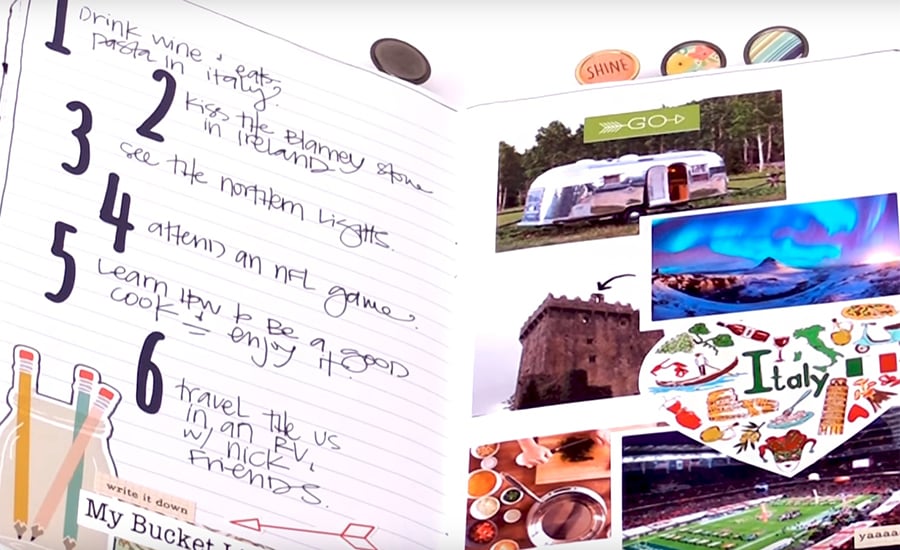 1 Drink wine + eat
pasta in italy?
2 Kiss the Blarney Stone
in IRELAND
3 see the northern Lights.
4 attend an nfl game.
5 Learn How to Be a good
cook + enjoy it.
6 travel the US
in an RV,
w/ nick,
FRIENDS.
write it down
My Bucket
SHINE
GO
Italy
yaaaa